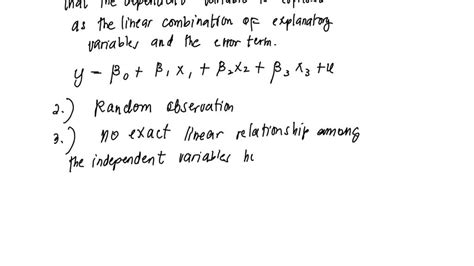 that the dependent variable is explained
as the linear combination of explanatory
variables and the error term.
y = β₀ + β₁ x₁ + β₂ x₂ + β₃ x₃ + u
2.) Random observation
3.) no exact linear relationship among
the independent variables